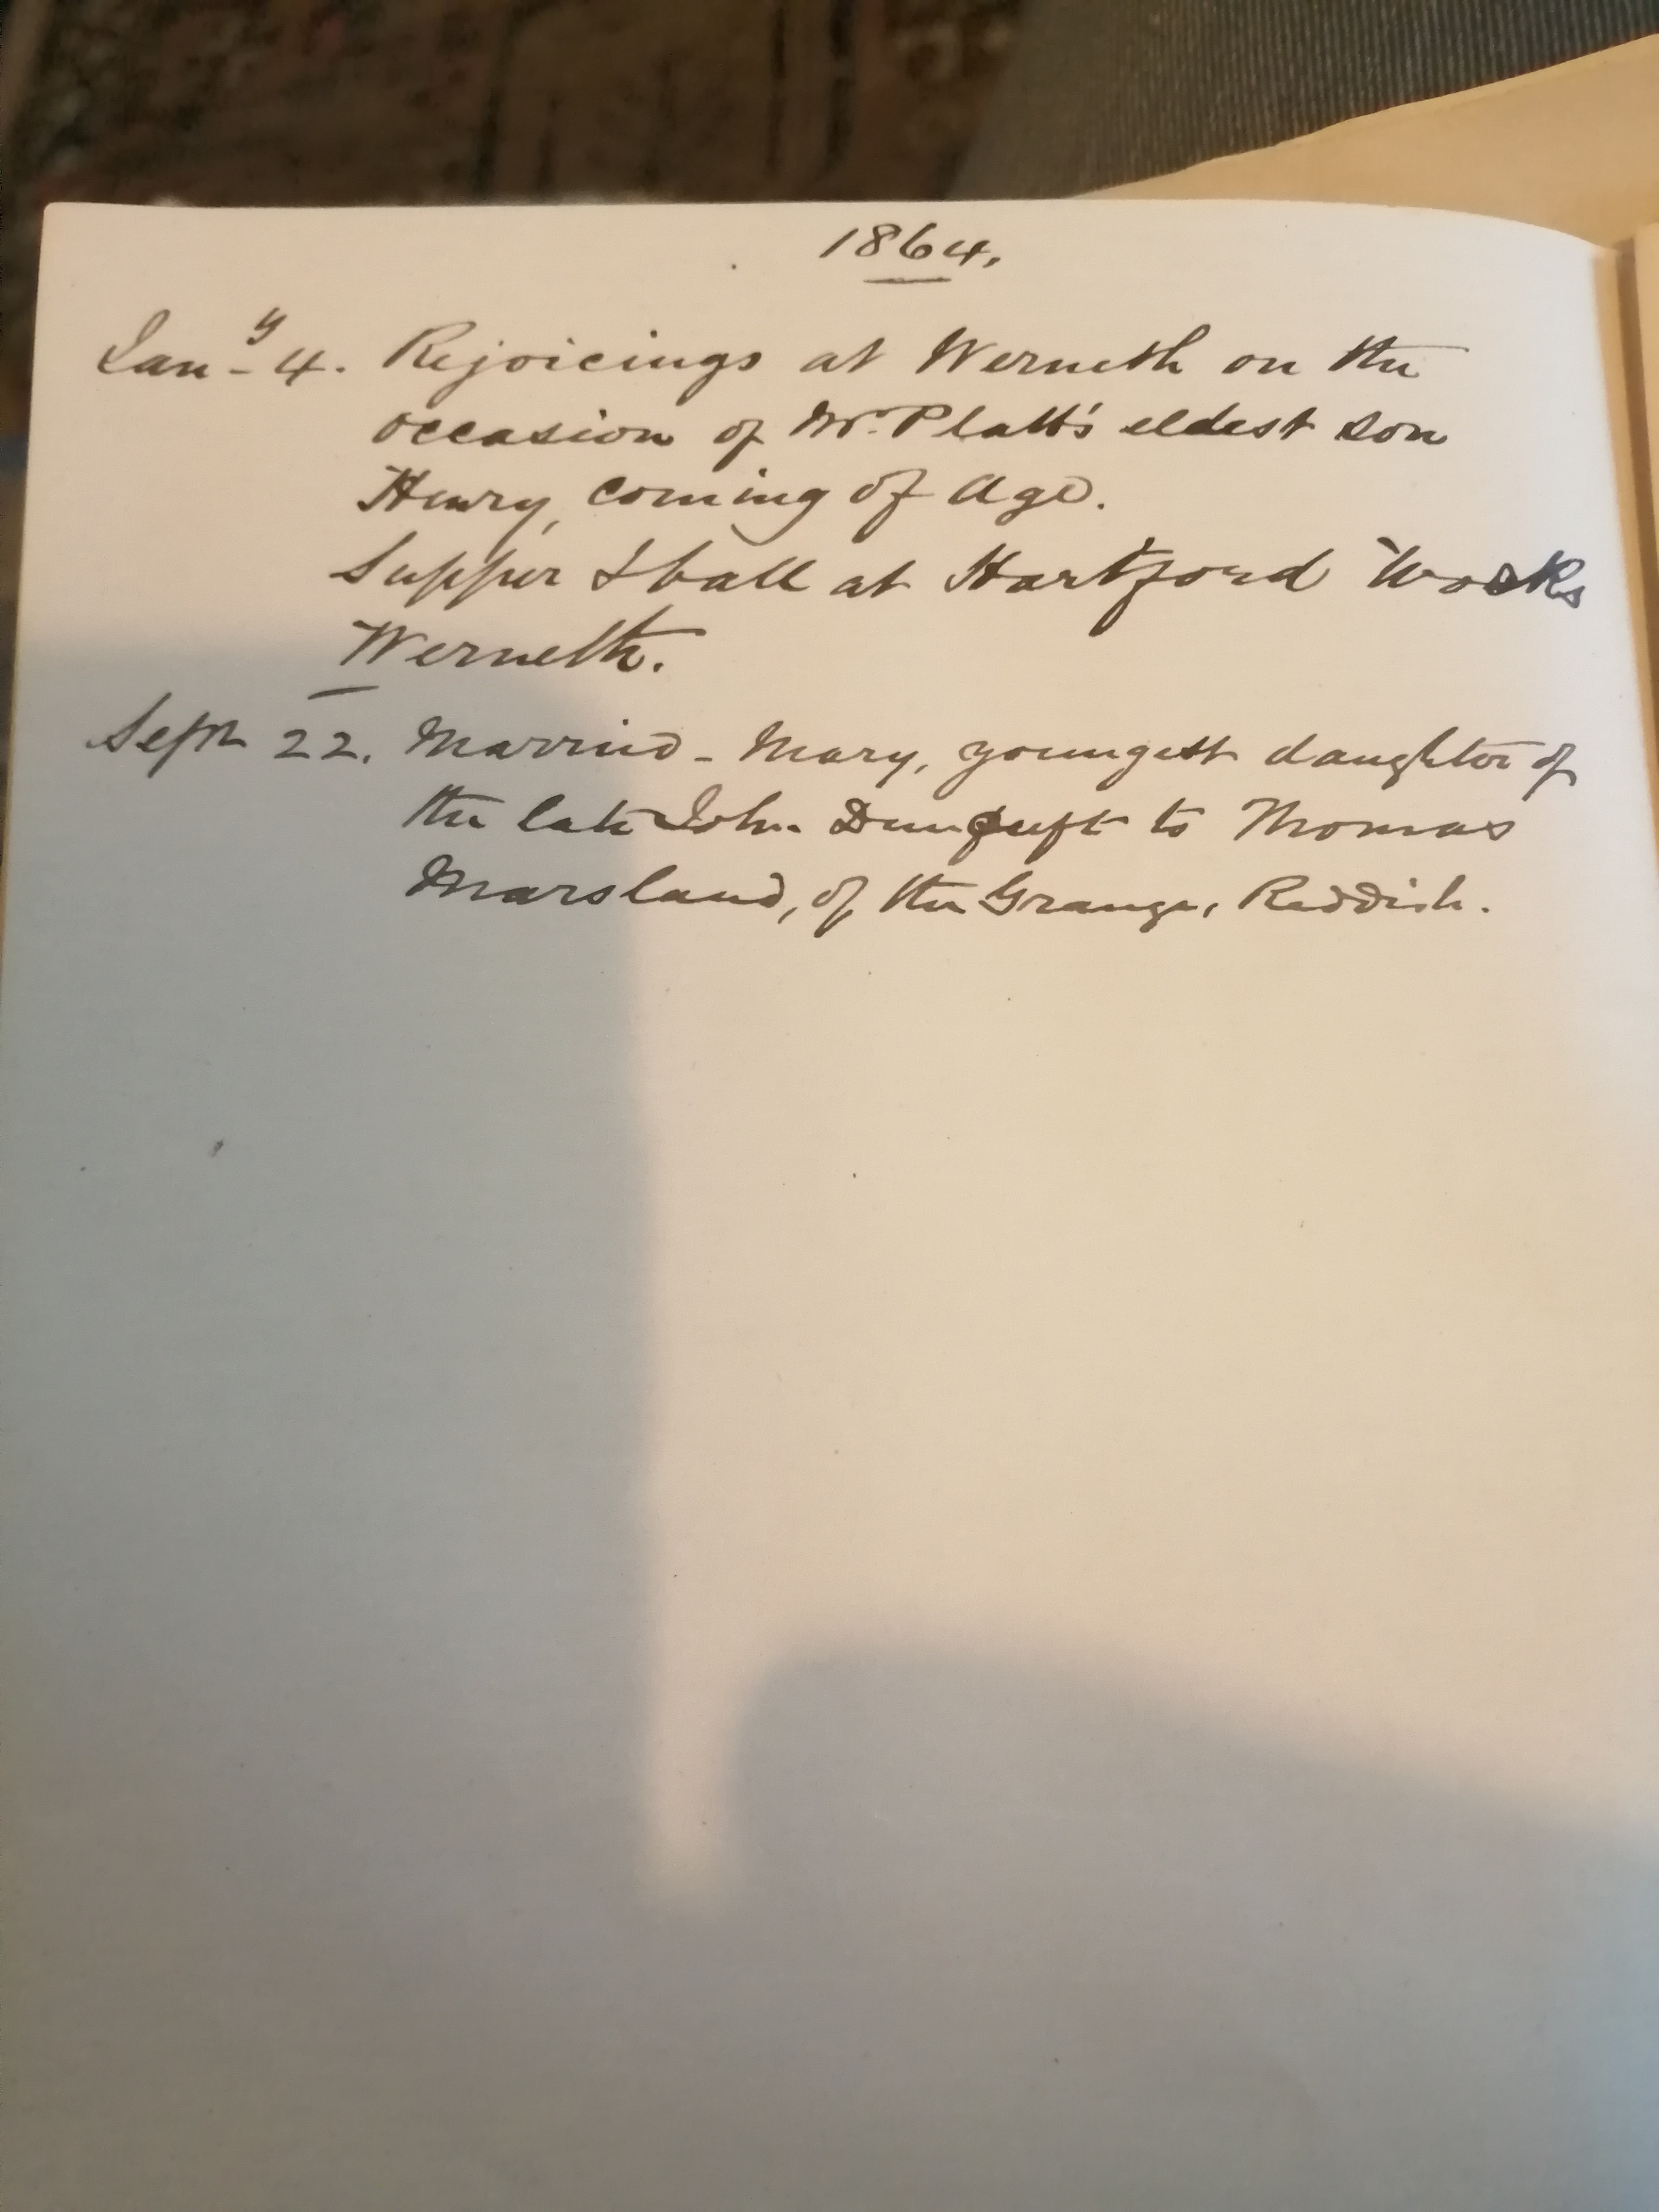 1864.
Jany 4. Rejoicings at Werneth on the
occasion of Mr. Platt's eldest son
Henry, coming of Age.
Supper & ball at Hartford Works
Werneth.
Sept 22. Married - Mary, youngest daughter of
the late John Duncuft to Thomas
Marsland, of the Grange, Reddish.